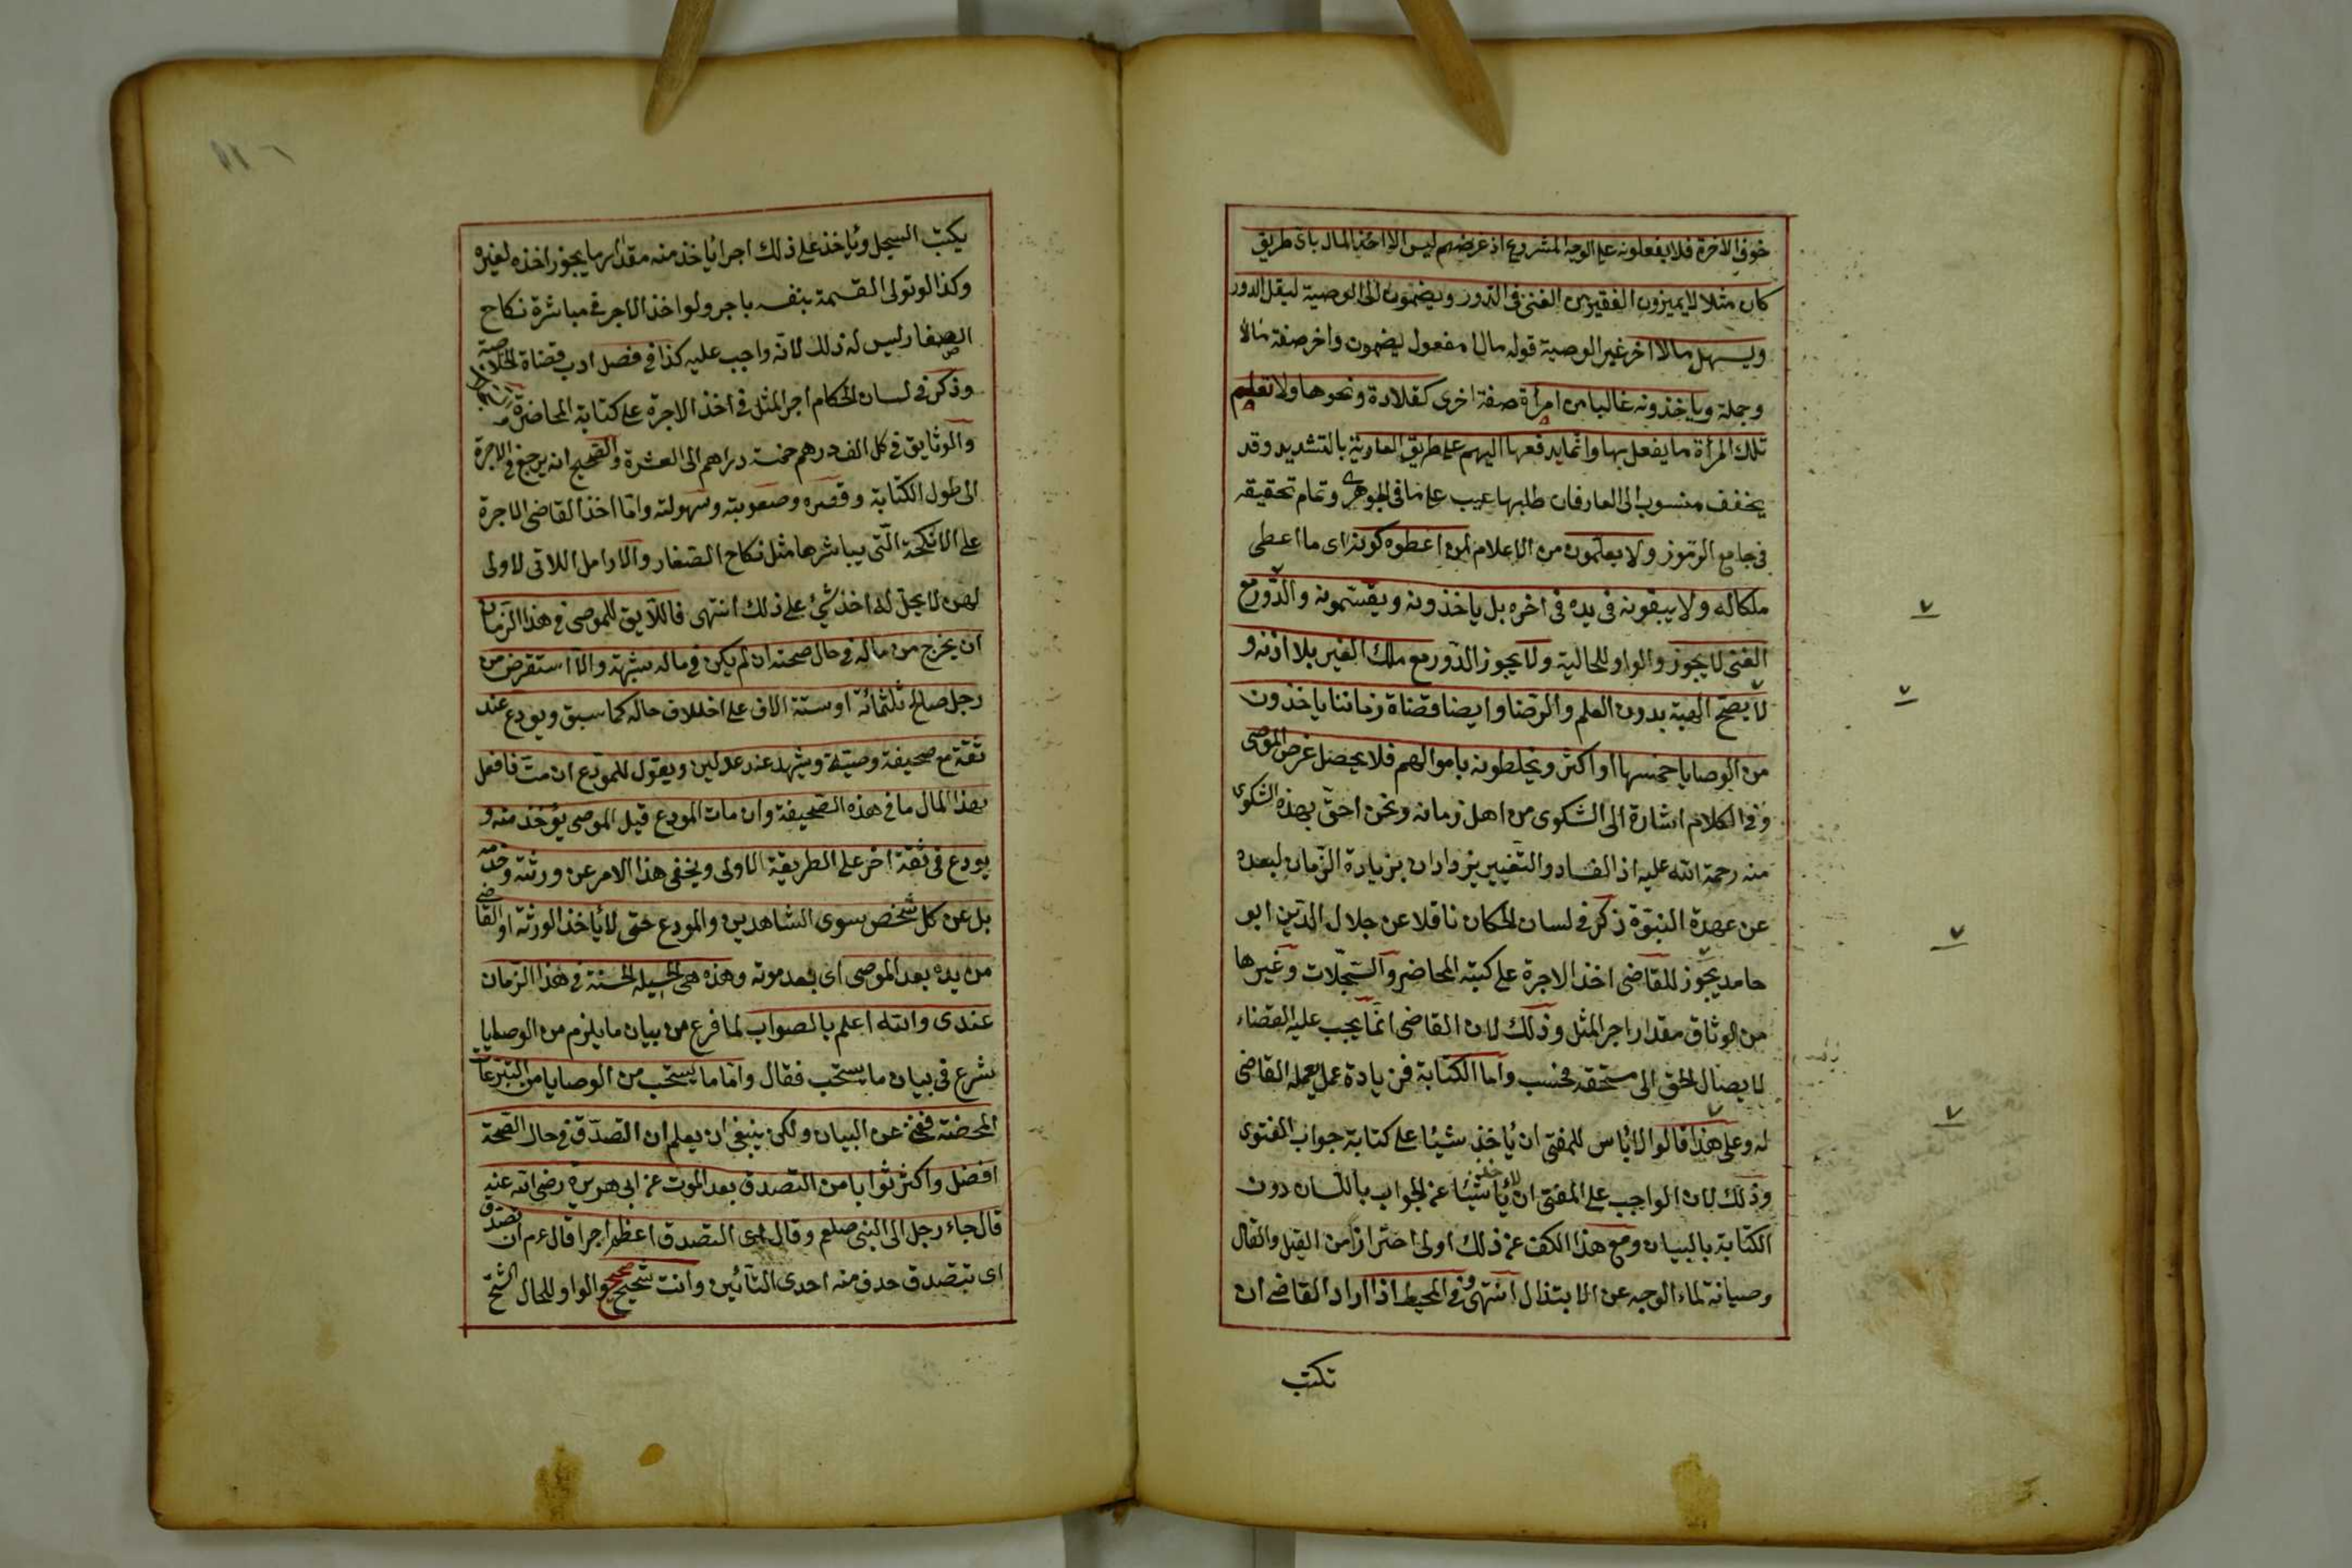 خوف الاخرة فلا يفعلونه على الوجه المشروع اذ غرضهم ليس الا اخذ المال باى طريق
كان مثلا لا يميزون الفقير من الغنى فى الدور ويضمون الى الوصية ليقل الدور
ويسهل مالا اخر غير الوصية قوله مالا مفعول ليضمون واخر صفة مالا
وجملة وياخذونه غالبا من امرأة صفة اخرى كقلادة ونحوها ولا تعلم
تلك المرأة ما يفعل بها وانما يدفعها اليهم على طريق العارية بالتشديد وقد
يخفف منسوب الى العار فان طلبها عيب على ما فى الجوهرى وتمام تحقيقه
فى جامع الرموز ولا يعلمون من الاعلام لمن اعطوه كونه اى ما اعطى
ملكا له ولا يبقونه فى يده فى اخره بل ياخذونه ويقسمونه والدور مع
الغنى لا يجوز والواو للحالية ولا يجوز الدور مع ملك الغير بلا اذنه و
لا يصح الهبة بدون العلم والرضا وايضا قضاة زماننا ياخذون
من الوصايا خمسها او اكثر ويخلطونه باموالهم فلا يحصل غرض الموصى
وفى الكلام اشارة الى الشكوى من اهل زمانه ونحن احق بهذه الشكوى
منه رحمة الله عليه اذ الفساد والتغيير يزدادان بزيادة الزمان لبعده
عن عهدة النبوة ذكر فى لسان الحكان ناقلا عن جلال الدين ابو
حامد يجوز للقاضى اخذ الاجرة على كتبه المحاضر والسجلات وغيرها
من الوثاق مقدار اجر المثل وذلك لان القاضى انما يجب عليه القضاء
لا يصال الحق الى مستحقه فحسب واما الكتابة فزيادة عمل يعمله القاضى
له وعلى هذا قالوا لا باس للمفتى ان ياخذ شيئا على كتابة جواب الفتوى
وذلك لان الواجب على المفتى ان لا ياخذ شيئا عن الجواب باللسان دون
الكتابة بالبيان ومع هذا الكف عن ذلك اولى احترازا من القيل والقال
وصيانة لماء الوجه عن الابتذال انتهى وفى المحيط اذا اراد القاضى ان
تكتب
يكتب السجل وياخذ على ذلك اجرا ياخذ منه مقدار ما يجوز اخذه لغيره
وكذا لو تولى القسمة بنفسه باجر ولو اخذ الاجر فى مباشرة نكاح
الصغار ليس له ذلك لانه واجب عليه كذا فى فصل ادب قضاة الخلاصة
وذكر فى لسان الحكام اجر المثل فى اخذ الاجرة على كتابة المحاضر
والوثايق فى كل الف درهم خمسة دراهم الى العشرة والصحيح انه يرجع فى الاجرة
الى طول الكتابة وقصره وصعوبته وسهولته واما اخذ القاضى الاجرة
على الانكحة التى يباشرها مثل نكاح الصغار والارامل اللاتى لا ولى
لهن لا يحل له اخذ شئ على ذلك انتهى فاللايق للموصى فى هذا الزمان
ان يخرج من ماله فى حال صحته ان لم يكن فى ماله شبهة والا استقرض من
رجل صالح ثلثمائة او ستة الاف على اختلاف حاله كما سبق ويودع عند
ثقة مع صحيفة وصيته ويشهد عند عدلين ويقول للمودع ان مت فافعل
بهذا المال ما فى هذه الصحيفة وان مات المودع قبل الموصى يؤخذ منه و
يودع فى ثقة اخر على الطريقة الاولى ويخفى هذا الامر عن ورثته وخدمه
بل عن كل شخص سوى الشاهدين والمودع حتى لا ياخذ الورثة او القاضى
من يده بعد الموصى اى بعد موته وهذه هى الحيلة الحسنة فى هذا الزمان
عندى والله اعلم بالصواب لما فرغ من بيان ما يلزم من الوصايا
شرع فى بيان ما يستحب فقال واما ما يستحب من الوصايا من التبرعات
المحضة فغنى عن البيان ولكن ينبغى ان يعلم ان التصدق فى حال الصحة
افضل واكثر ثوابا من التصدق بعد الموت عن ابى هريرة رضى الله عنه
قال جاء رجل الى النبى صلعم وقال اى التصدق اعظم اجرا قال عم ان تصدق
اى تتصدق حذف منه احدى التائين وانت شحيح صحيح والواو للحال الشح